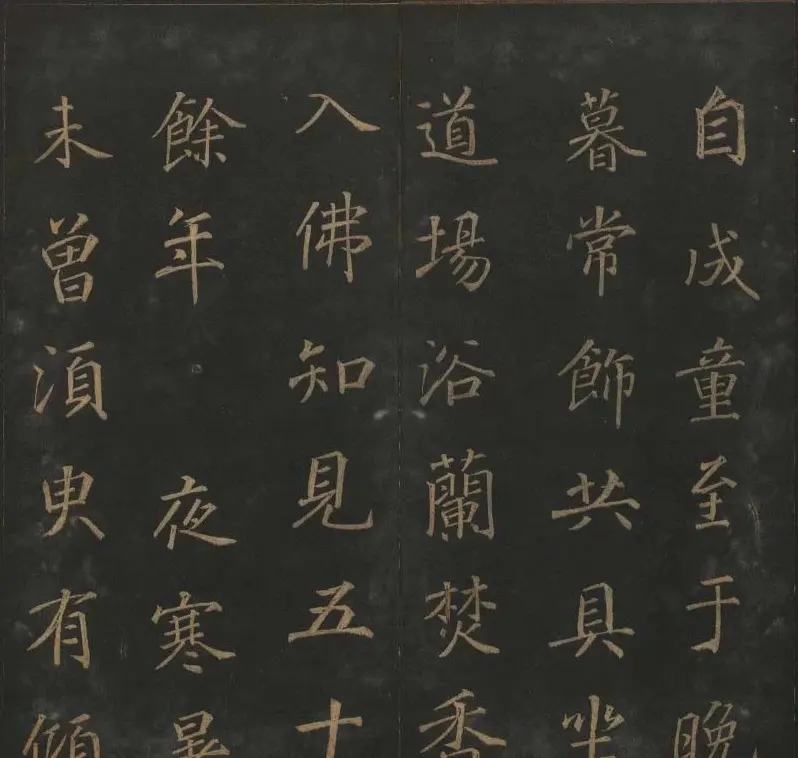 自成童至于晚
暮常飾共具坐
道場浴蘭焚香
入佛知見五十
餘年 夜寒暑
未曽湏臾有傾